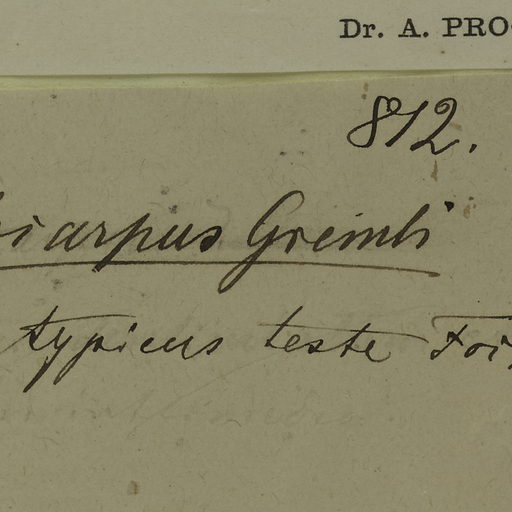 Dr. A. PRO
812.
carpus Gremli
typicus teste